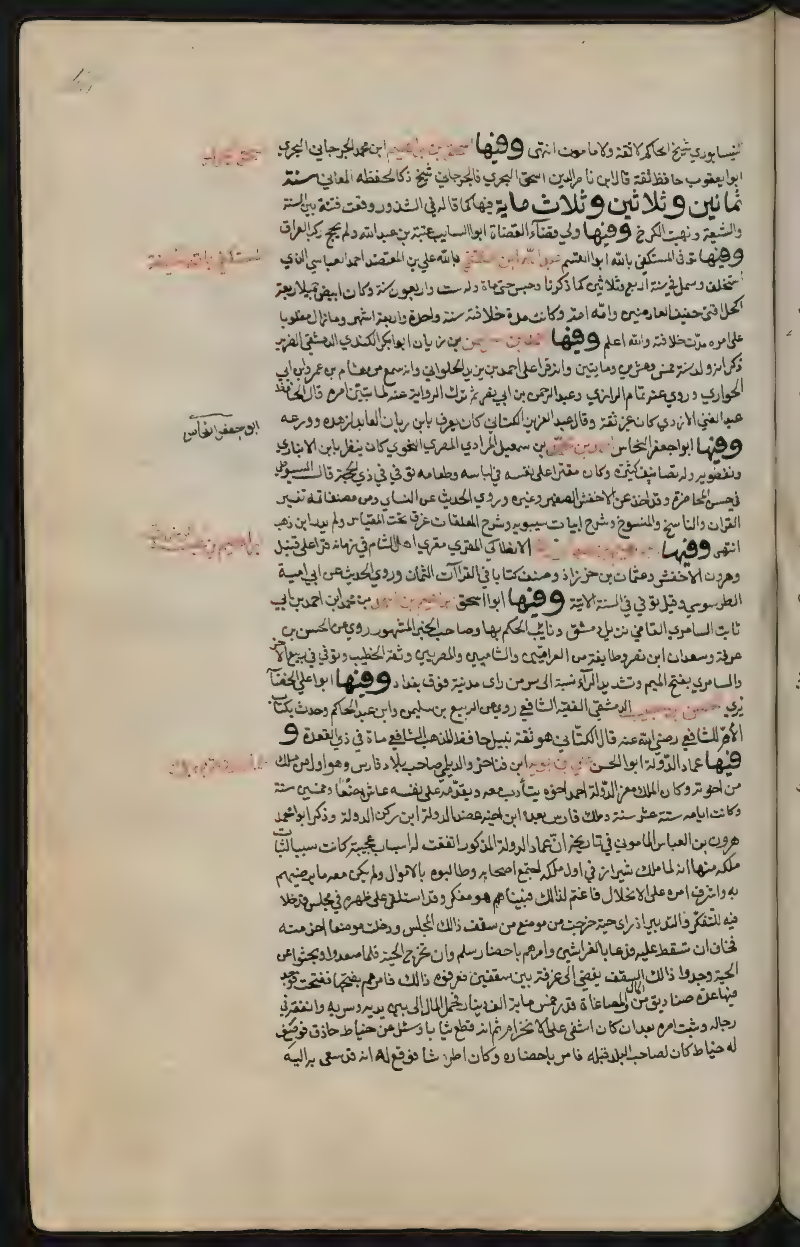 النيسابوري شيخ الحاكم لا ثقة ولا مامون انتهى وفيها اسحق بن ابراهيم ابن محمد الجرجاني البحري
ابو يعقوب حافظ ثقة قال ابن ناصر الدين اسحق البحري فالجرجاني شيخ ذكا لحفظه المعاني سنة
ثمانين وثلاثين وثلاث ماية فيها كما قاله في الشذور وقعت فتنة بين السنة
والشيعة ونهبت الكرخ وفيها ولي قضاء القضاة ابو السايب عتبة بن عبد الله ولم يحج ركب العراق
وفيها توفي المستكفي بالله ابو القسم عبد الله ابن المكتفي بالله علي بن المعتضد احمد العباسي الذي
استخلف وسمل في سنة اربع وثلاثين كما ذكرنا وحبس حتى مات وله ست واربعون سنة وكان ابيض جميلا ربعة
اكحل اقنى خفيف العارضين وامه امة وكانت مدة خلافته سنة واحدة واربعة اشهر وما زال مغلوبا
على امره مدت خلافته والله اعلم وفيها بن زبان ابو بكر الكندي الدمشقي الضرير
ذكر انه ولد سنة خمس وعشرين ومايتين وانه قرا على احمد بن يزيد الحلواني وانه سمع من هشام بن عمار وابن ابي
الحواري وروي عنه تمام الرازي وعبد الرحمن بن ابي نصر ثم ترك الرواية عنه لما تبين امره قال الحافظ
عبد الغني الازدي كان غير ثقة وقال عبد العزيز الكتاني كان يعرف بابن زبان العابد لزهده وورعه
ابو جعفر النحاس
وفيها ابو جعفر النحاس احمد بن محمد بن سمعيل المرادي المصري النحوي كان ينظر بابن الانباري
ونفطويه وله تصانيف كثيرة وكان مقترا على نفسه في لباسه وطعامه توفي في ذي الحجة قال السيوطي
في حسن المحاضرة وقد اخذ عن الاخفش الصغير وغيره وروي الحديث عن النساي ومن مصنفاته تفسير
القران والناسخ والمنسوخ وشرح ابيات سيبويه وشرح المعلقات غرق تحت المقياس ولم يدر اين ذهب
انتهى وفيها الانطاكي المقري مقري اهل الشام في زمانه قرا على قنبل
وهرون الاخفش وعثمان بن خرزاذ وصنف كتابا في القراآت الثمان وروي الحديث عن ابي امية
الطرسوسي وقيل توفي في السنة الاتية وفيها ابو اسحق بن محمد ابن احمد بن ابي
ثابت السامري القاضي نزيل دمشق ونايب الحكم بها وصاحب الجزء المشهور روي عن الحسن بن
عرفة وسعدان ابن نصر وطايفة من العراقيين والشاميين والمصريين وثقه الخطيب وتوفي في ربيع الاخر
والسامري بفتح الميم وتشديد الرآء نسبة الى سر من راى مدينة فوق بغداد وفيها ابو علي الحضآ
يري حسن بن حبيب الدمشقي الفقيه الشافعي روي عن الربيع بن سليمن وابن عبد الحاكم وحدث بكتاب
الام للشافعي رضي الله عنه قال الكتاني هو ثقة نبيل حافظ لمذهب الشافعي مات في ذي القعدة و
فيها عماد الدولة ابو الحسن علي بن بويه ابن فناخسرو الديلمي صاحب بلاد فارس وهو اول من ملك
من اخوته وكان الملك معز الدولة احمد اخوه يتأدب معه ويقدمه على نفسه عاش بضعا وخمسين سنة
وكانت ايامه ستة عشر سنة وملك فارس بعده ابن اخيه عضد الدولة ابن ركن الدولة وذكر ابو محمد
هرون بن العباس الماموني في تاريخه ان عماد الدولة المذكور اتفقت له اسباب عجيبة كانت سببا لثبات
ملكه منها انه لما ملك شيراز في اول ملكه اجتمع اصحابه وطالبوه بالاموال ولم يكن معه ما يرضيهم
به واشرف امره على الانحلال فاغتم لذلك فبينما هو مفكر وقد استلقى على ظهره في مجلس قد خلا
فيه للتفكر والتدبير اذ راى حية خرجت من موضع من سقف ذالك المجلس ودخلت موضعا اخر منه
فخاف ان تسقط عليه فدعا بالفراشين وامرهم باحضار سلم وان تخرج الحية فلما صعدوا وبحثوا عن
الحية وجدوا ذالك السقف يفضي الى غرفة بين سقفين فعرفوه ذالك فامرهم بفتحها ففتحت فوجد
فيها عدة صناديق من المال والمصاغات قدر خمس ماية الف دينار فحمل المال الى بين يديه وسر به وانفقه في
رجاله وثبت امره بعد ان كان اشفى على الانخرام ثم انه قطع ثيابا وسئل عن خياط حاذق فوصف
له خياط كان لصاحب البلد قبله فامر باحضاره وكان اطروشا فوقع له انه قد سعى به اليه